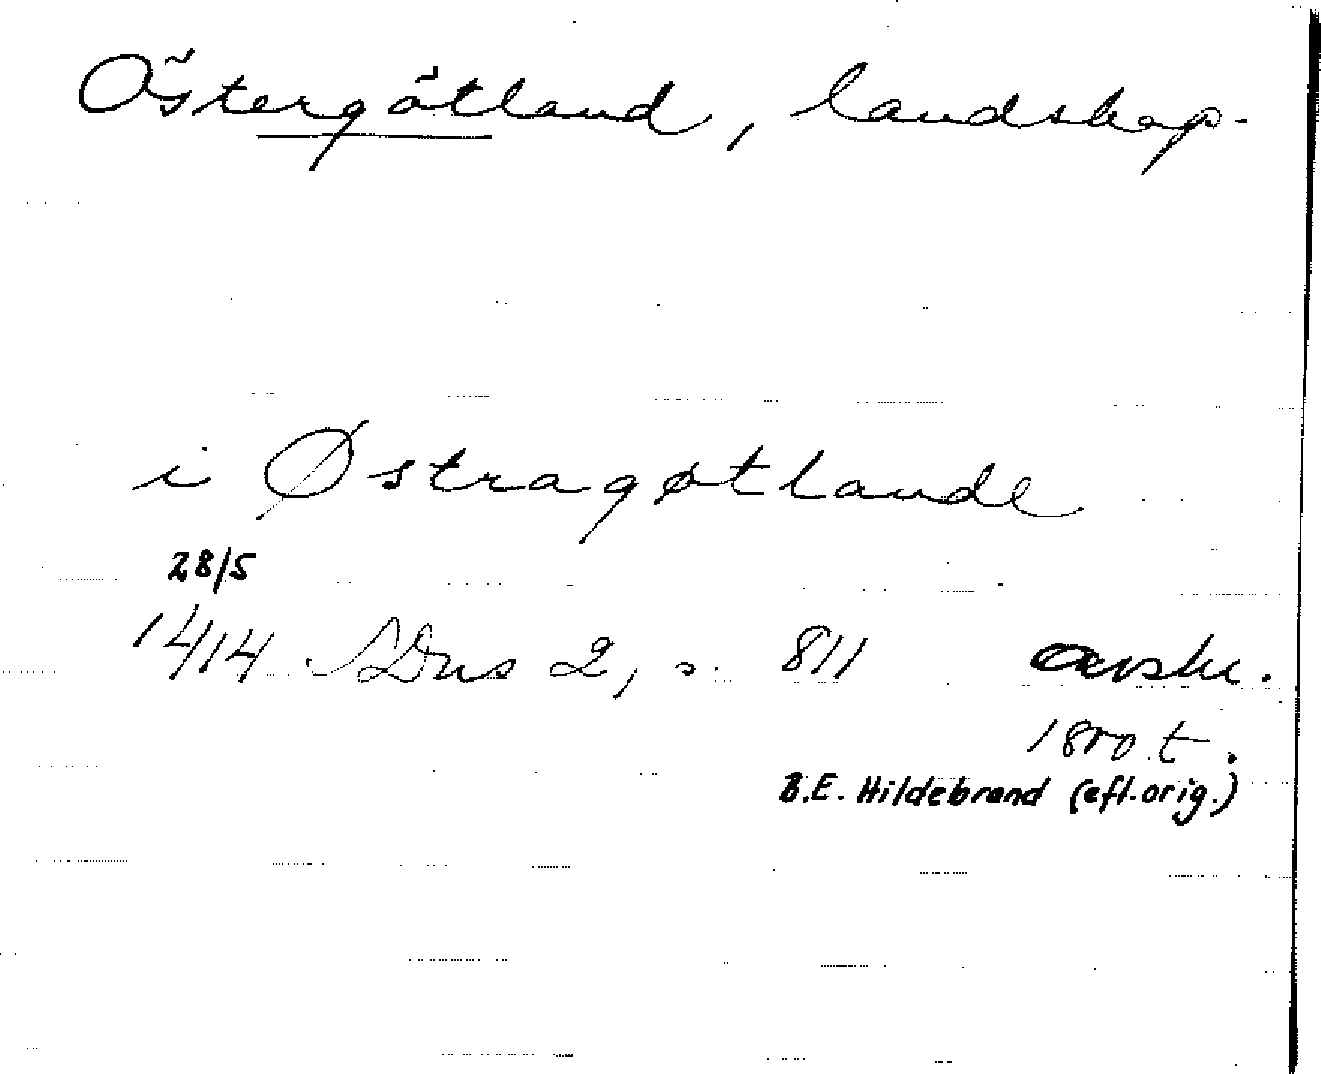 Östergötland, landskap.
i Østragøtlande
28/5
1414 SDns 2, s. 811 avskr.
1800 t.
B.E. Hildebrand (efl. orig.)